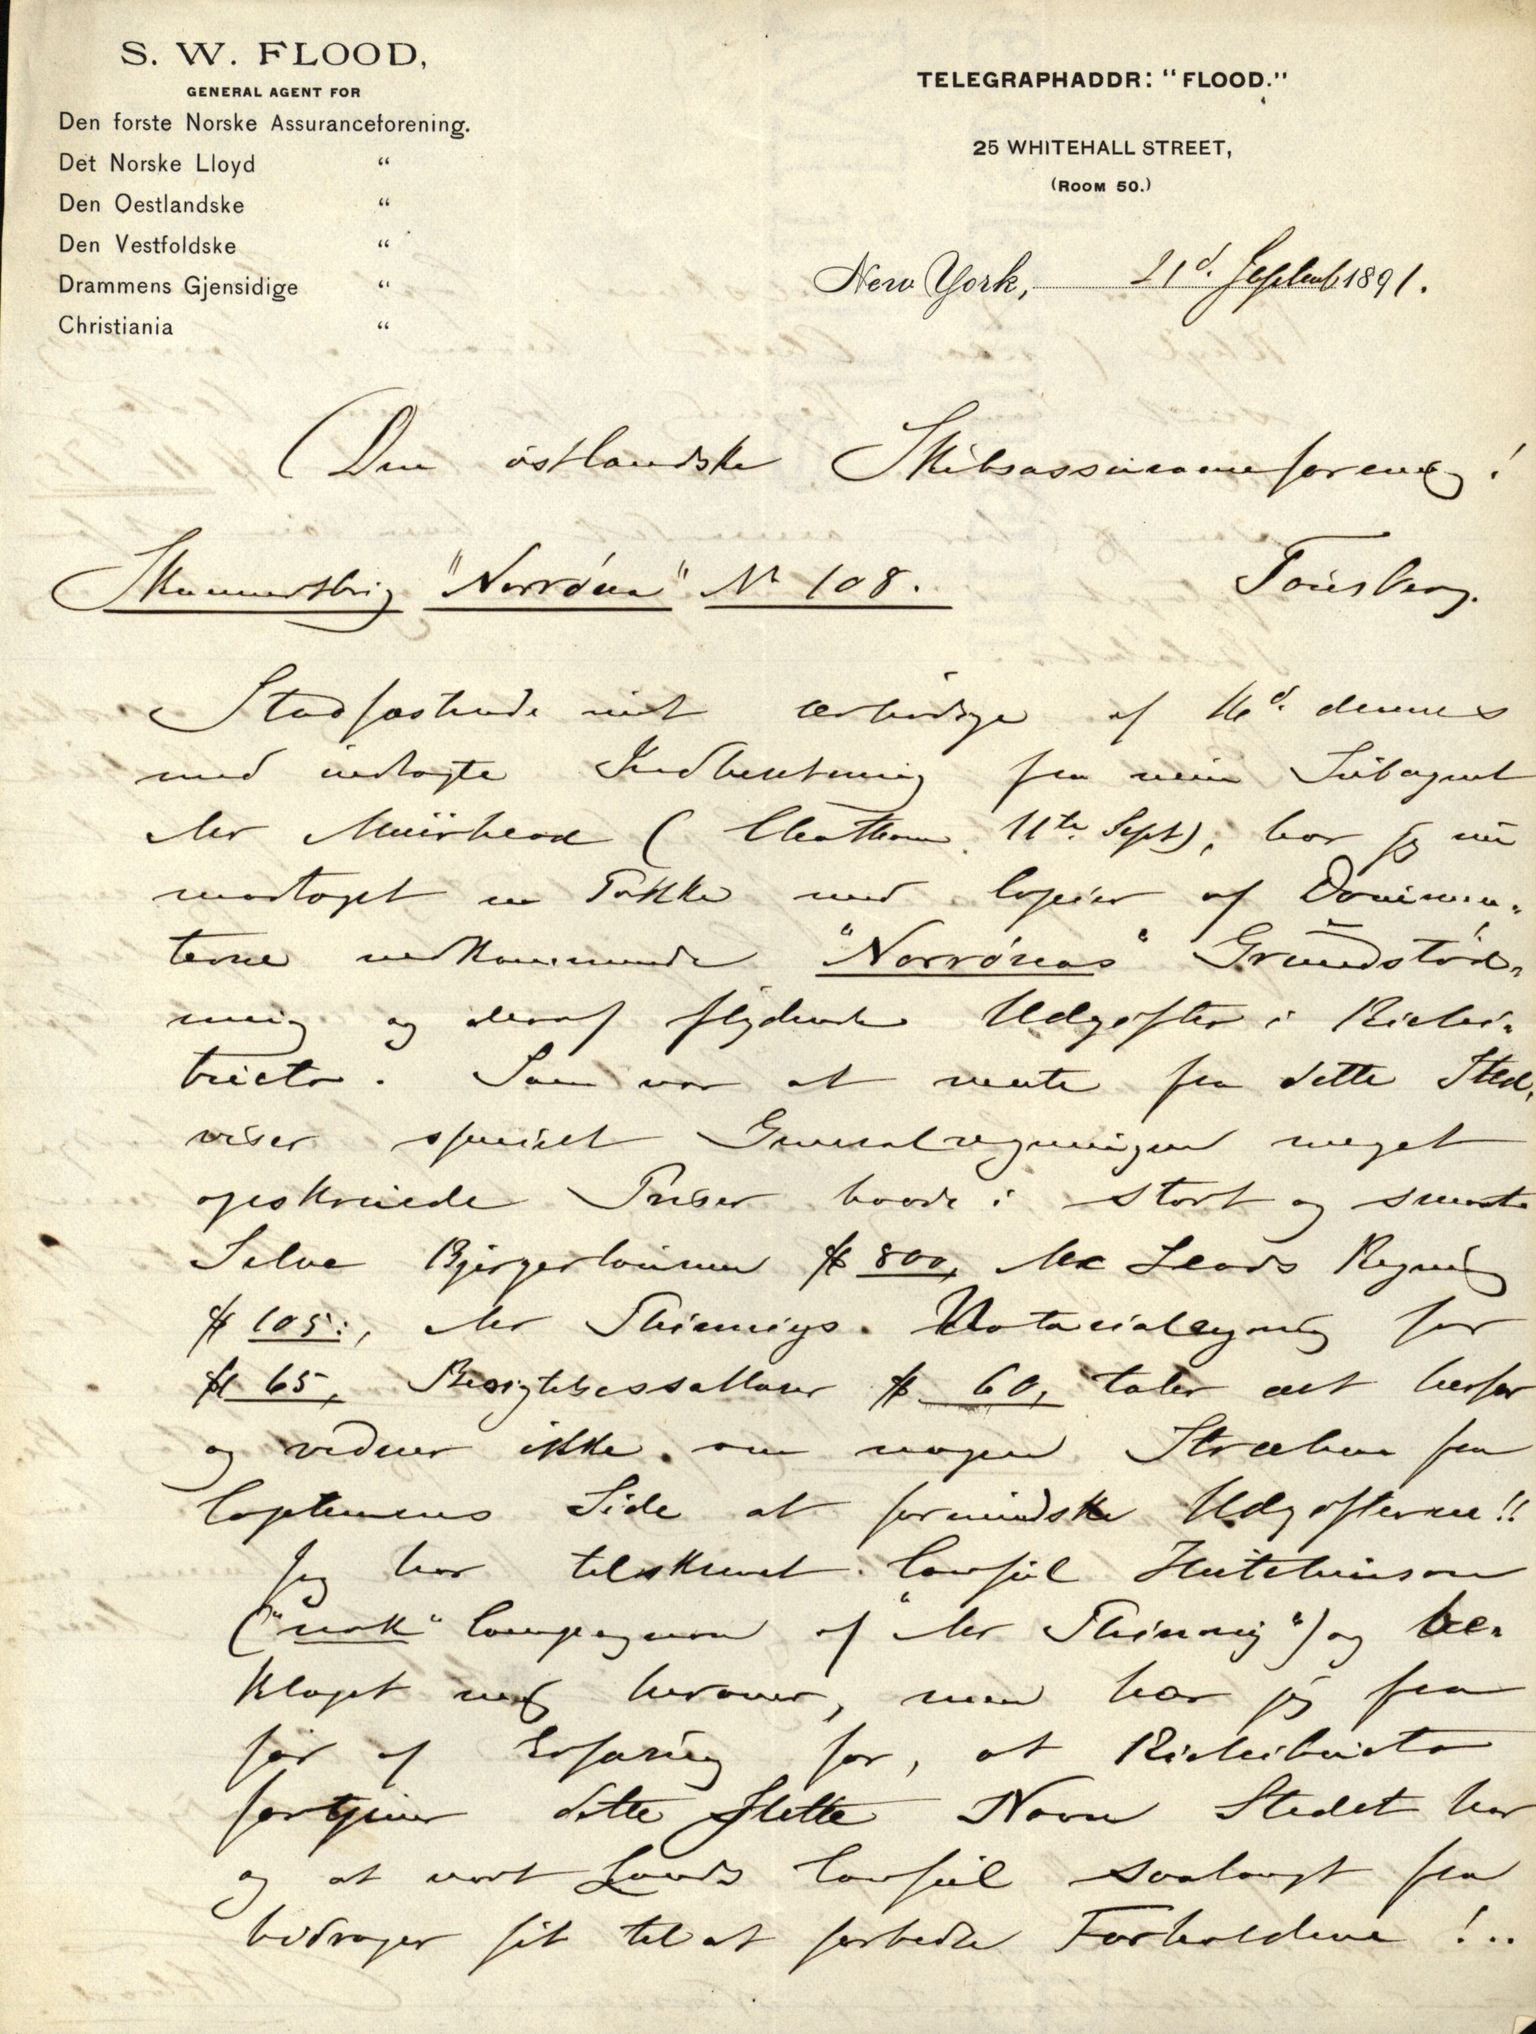 S. W. FLOOD,
GENERAL AGENT FOR
Den forste Norske Assuranceforening.
Det Norske Lloyd "
Den Oestlandske "
Den Vestfoldske "
Drammens Gjensidige "
Christiania "
TELEGRAPHADDR: "FLOOD."
25 WHITEHALL STREET,
(ROOM 50.)
New York, 21d. Septemb 1891.
Den østlandske Skibsassuranceforening!
Tönsberg.
Skonnertbrig "Norrøna" No 108.
Stadfæstende mit ærbødige af 16d. dennes
med indlagte Indberetning fra min Subagent
Mr Muirhead (Chatham 11th Sept), har jeg nu
modtaget en Pakke med Copier af Documen-
terne vedkommende "Norrønas" Grundstød-
ning og deraf flydende Udgifter i Richi-
bucto. Som var at vente fra dette Sted,
viser specielt Generalregningen meget
opskruede Priser baade i stort og smaat
Selve Bjergerlønnen $ 800, Mc Leods Regning
$ 105:, Mr Phinneys. Notarialregning for
$ 65, Besigtelsessallarer $ 60, taler alt herfor
og vidner ikke om nogen Stræben fra
Capteinens Side at formindske Udgifterne!!
Jeg har tilskrevet Consul Hutchinson
("nok" Compagnon af "Mr Phinney") og be-
klaget mig herover, men har jeg fra
før af Erfaring for, at Richibucto
fortjener dette slette Navn Stedet har
og at vort Lands Consul saalangt fra
bidrager sit til at forbedre Forholdene!..